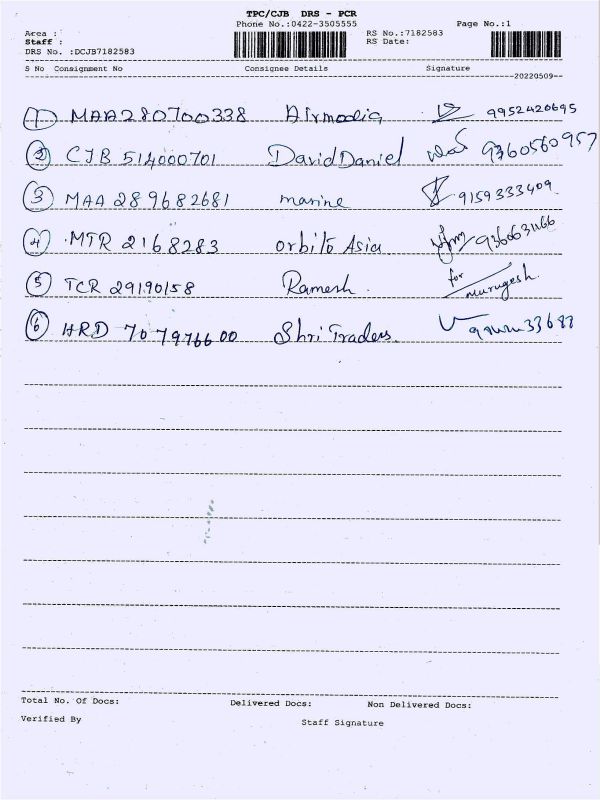 TPC/CJB DRS - PCR
Phone No.:0422-3505555 Page No.:1
Area : RS No.:7182583
Staff : RS Date:
DRS No. :DCJB7182583
S No Consignment No Consignee Details Signature
20220509
1 MAA280700338 Airmedia 9952420695
2 CJB 514000701 David Daniel 9360560957
3 MAA 289682681 marine 9159333409
4 MTR 2168283 Orbito Asia
5 TCR 29190158 Ramesh. for Murugesh.
6 HRD 707976600 Shri Traders.
Total No. Of Docs: Delivered Docs: Non Delivered Docs:
Verified By Staff Signature